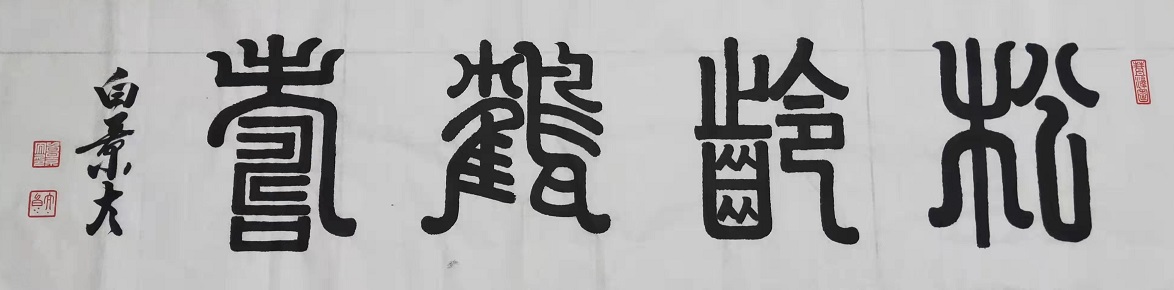 松齡鶴壽
白景友